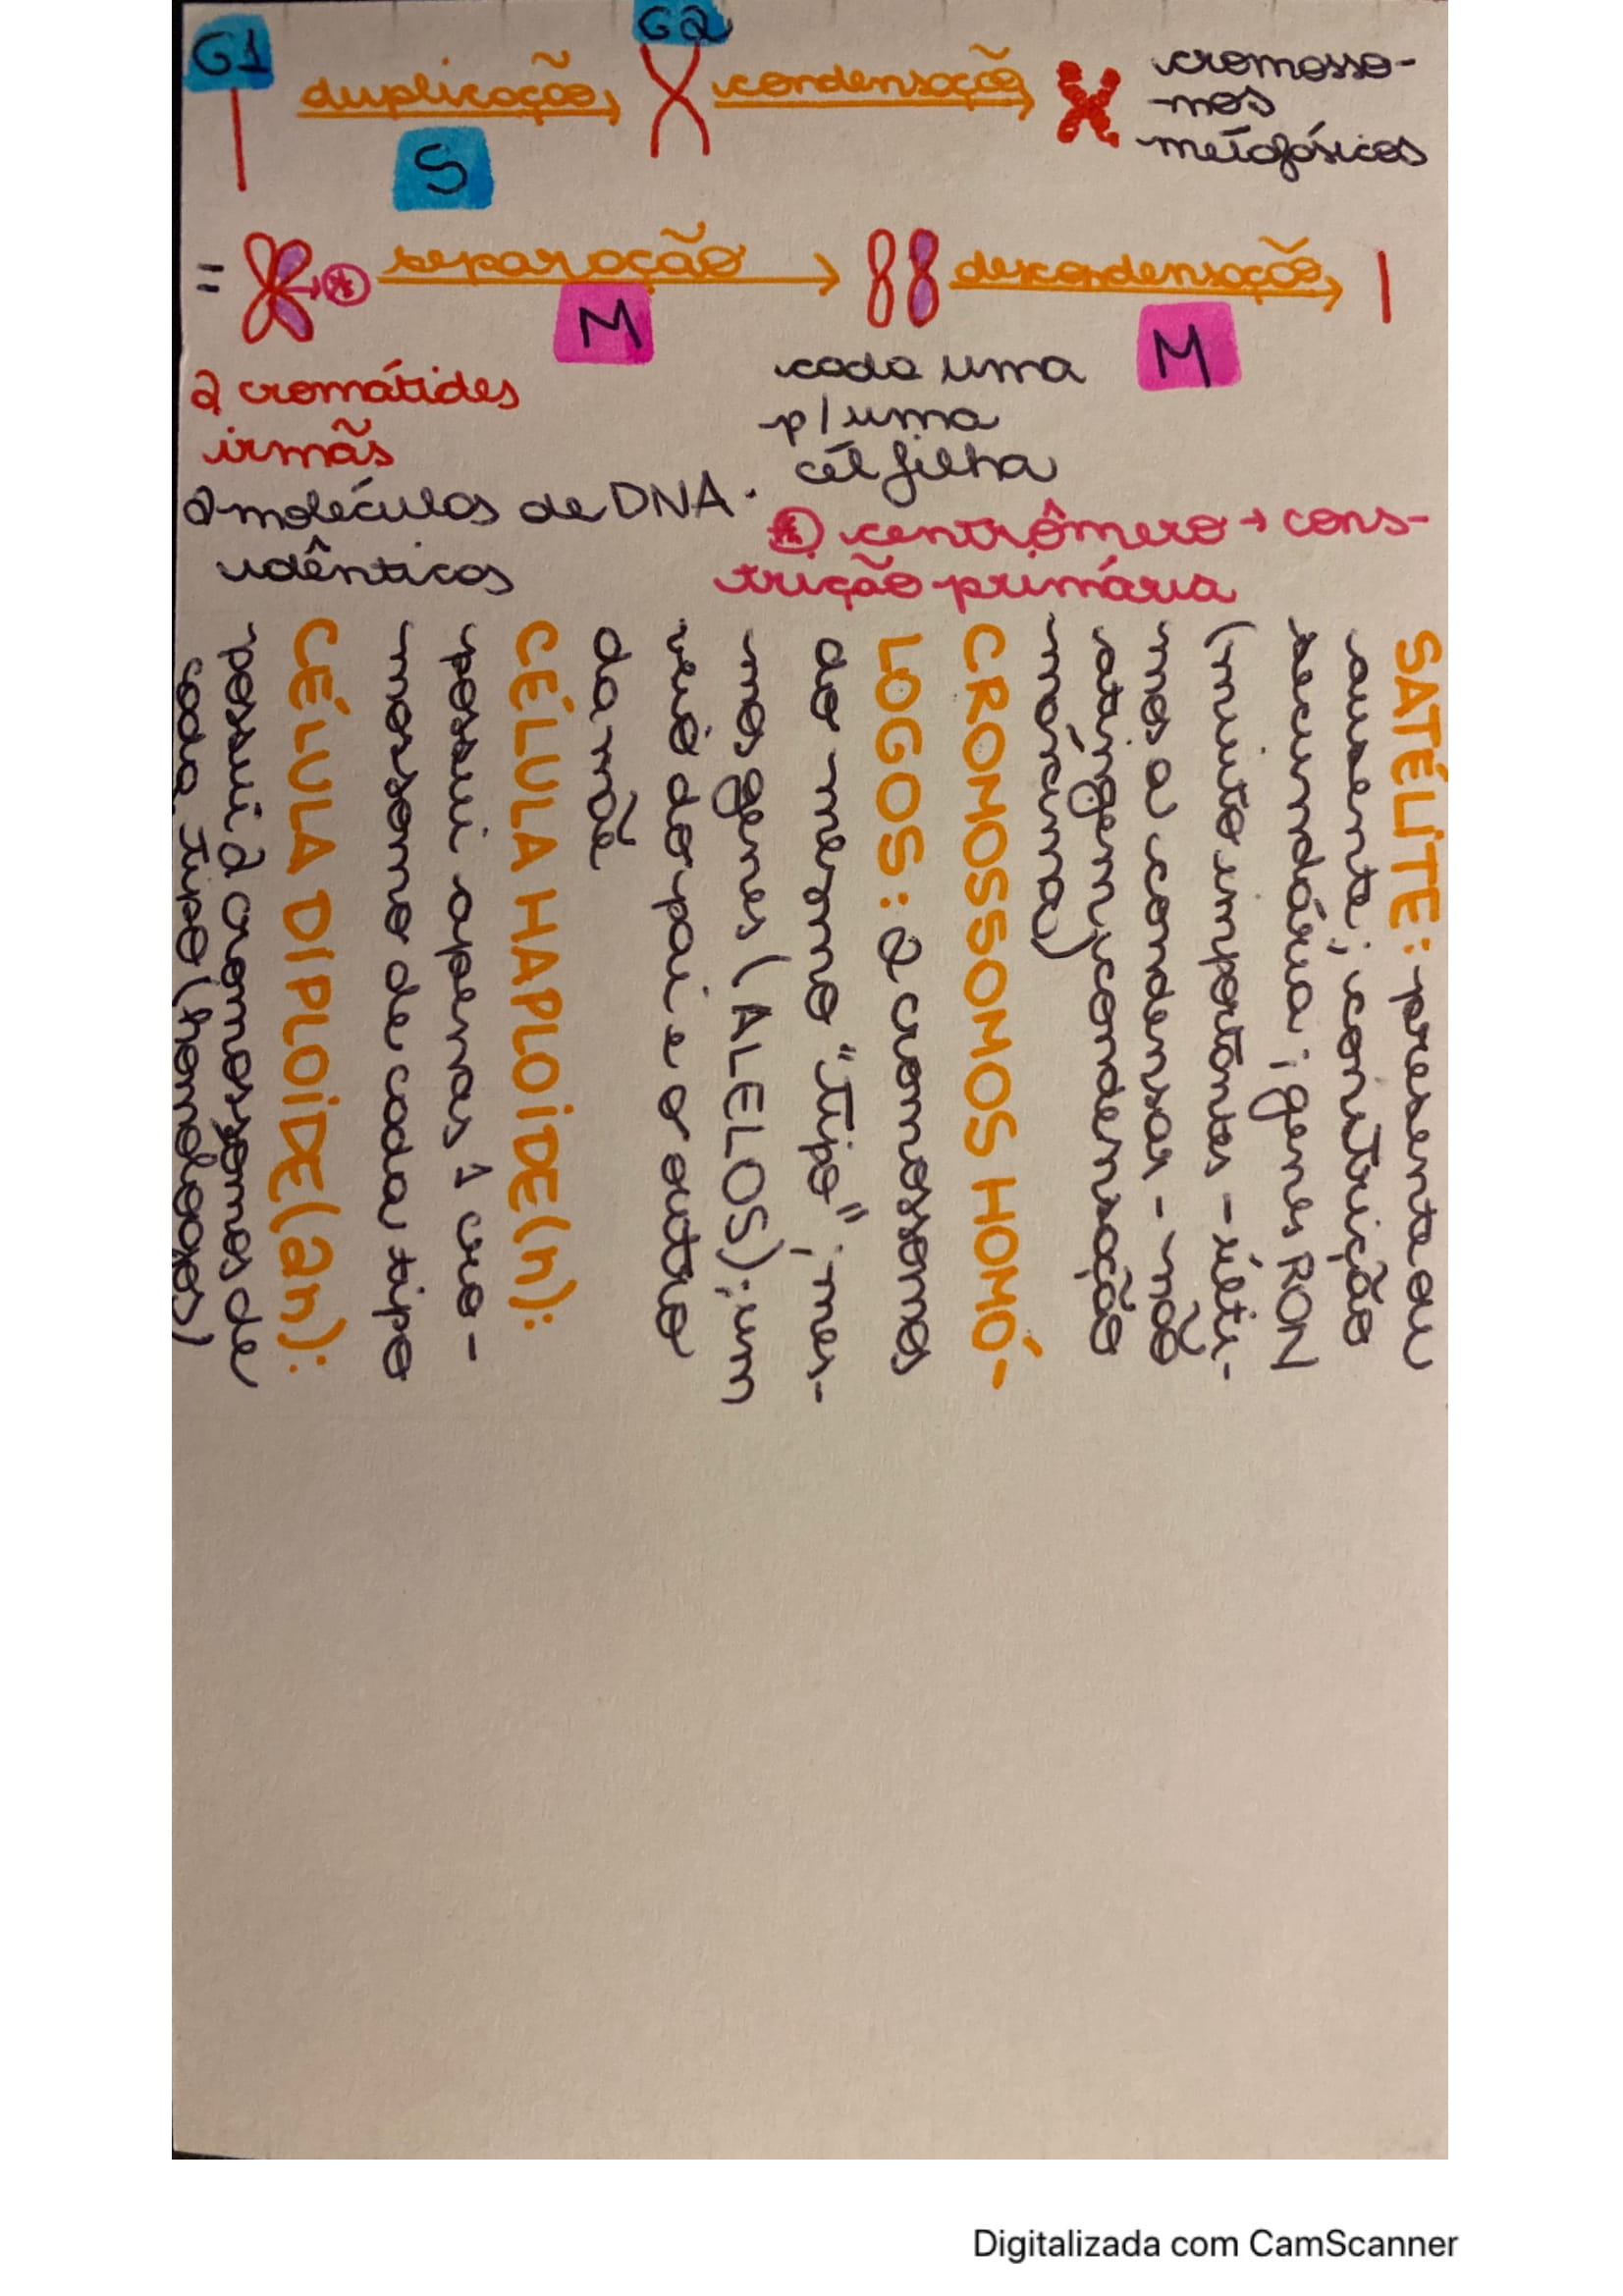 G1
duplicação
S
G2
condensação
cromosso-
mos
metafásicos
=
*
separação
M
descondensação
M
2 cromátides
irmãs
2 moléculas de DNA
idênticas
cada uma
p/ uma
cél filha
* centrômero → cons-
trição primária
SATÉLITE: presente ou
ausente; constrição
secundária; genes RON
(muito importantes - últi-
mos a condensar - não
atingem condensação
máxima)
CROMOSSOMOS HOMÓ-
LOGOS: 2 cromossomos
do mesmo "tipo"; mes-
mos genes (ALELOS); um
veio do pai e o outro
da mãe
CÉLULA HAPLOIDE (n):
possui apenas 1 cro-
mossomo de cada tipo
CÉLULA DIPLOIDE (2n):
possui 2 cromossomos de
cada tipo (homólogos)
Digitalizada com CamScanner